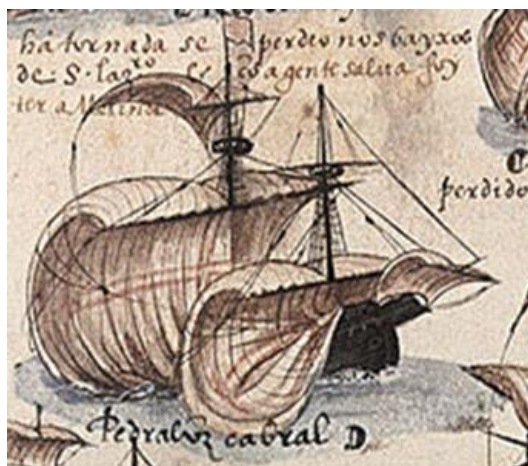 há tornada se perdeo nos bayxos
de S. laz.ro co a gente salua foy
ter a Melinde
perdido
Pedraluz cabral D